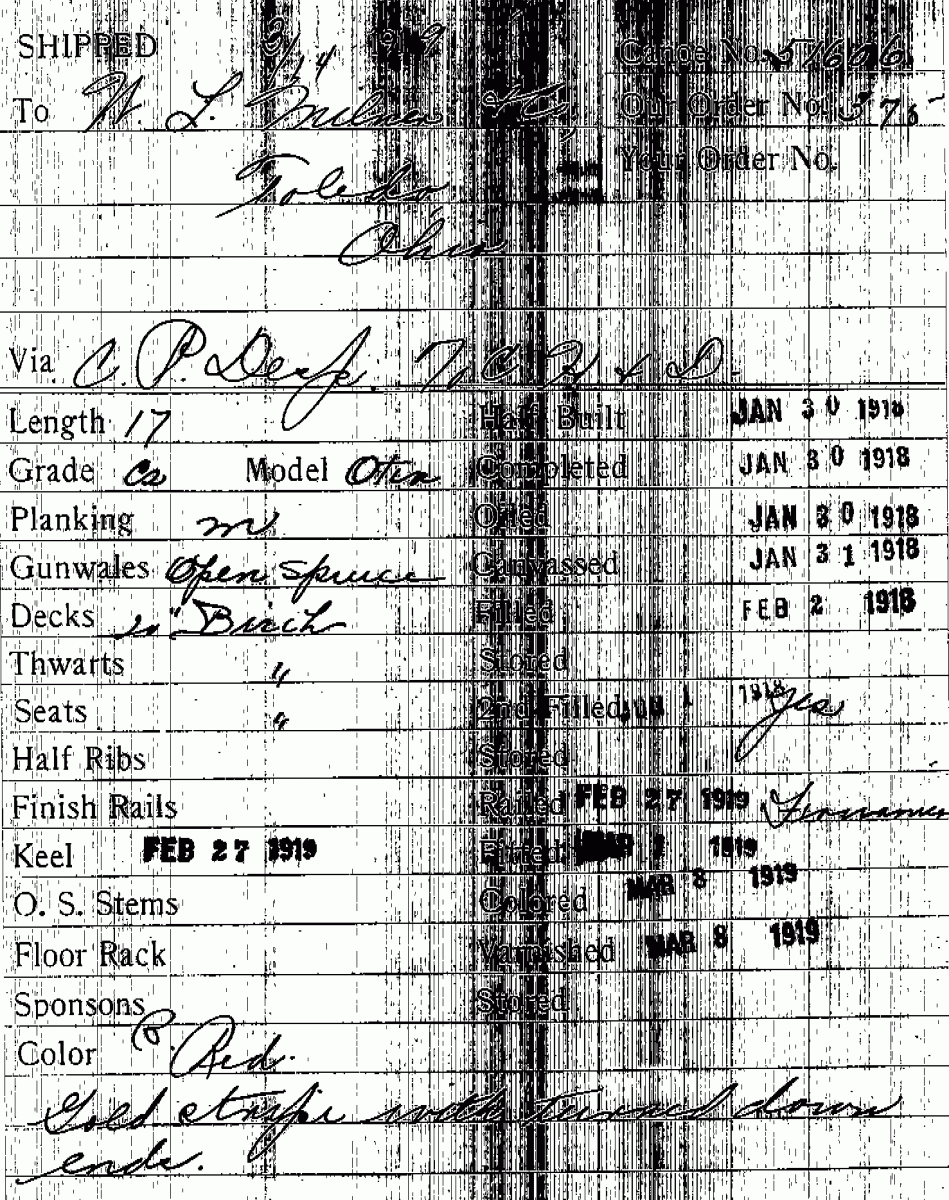 SHIPPED 3/14 1919 Canoe No. 51606
To W. L. Milner & Co, Our Order No. 375-
Toledo Your Order No.
Ohio
Via C. P. Desp. C H & D.
Length 17 Half Built JAN 30 1918
Grade cs Model Otca Completed JAN 30 1918
Planking m Oiled JAN 30 1918
Gunwales Open spruce Canvassed JAN 31 1918
Decks 20" Birch Filled FEB 2 1918
Thwarts " Stored
Seats " 2nd Filled 1 1918 yes
Half Ribs Stored
Finish Rails Railed FEB 27 1919
Keel FEB 27 1919 Fitted MAR 1 1919
O. S. Stems Colored MAR 8 1919
Floor Rack Varnished MAR 8 1919
Sponsons Stored
Color Red.
Gold stripe with turned down
ends.